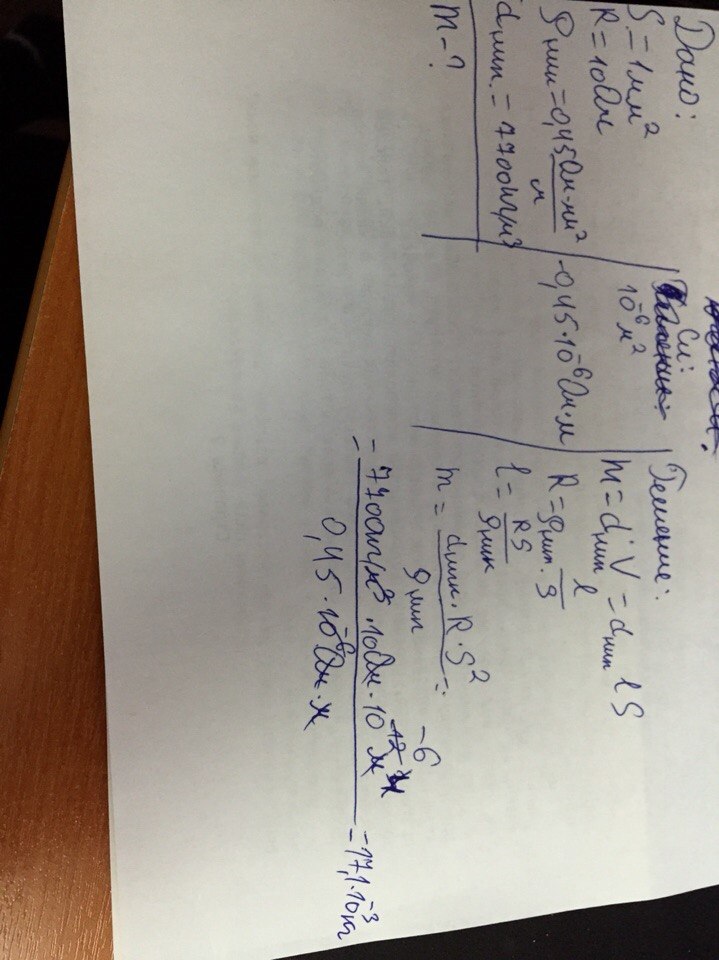 Дано:
S = 1 мм²
R = 10 Ом
ρник = 0,45 Ом·мм²/м
dник. = 7700 кг/м³
m - ?
Си:
10⁻⁶ м²
0,45·10⁻⁶ Ом·м
Решение:
m = dник·V = dник l S
R = ρник · l/S
l = RS/ρник
m = dник·R·S²/ρник =
= 7700 кг/м³ · 10 Ом · 10⁻¹² м/0,45·10⁻⁶ Ом·м = 17,1·10⁻³ кг